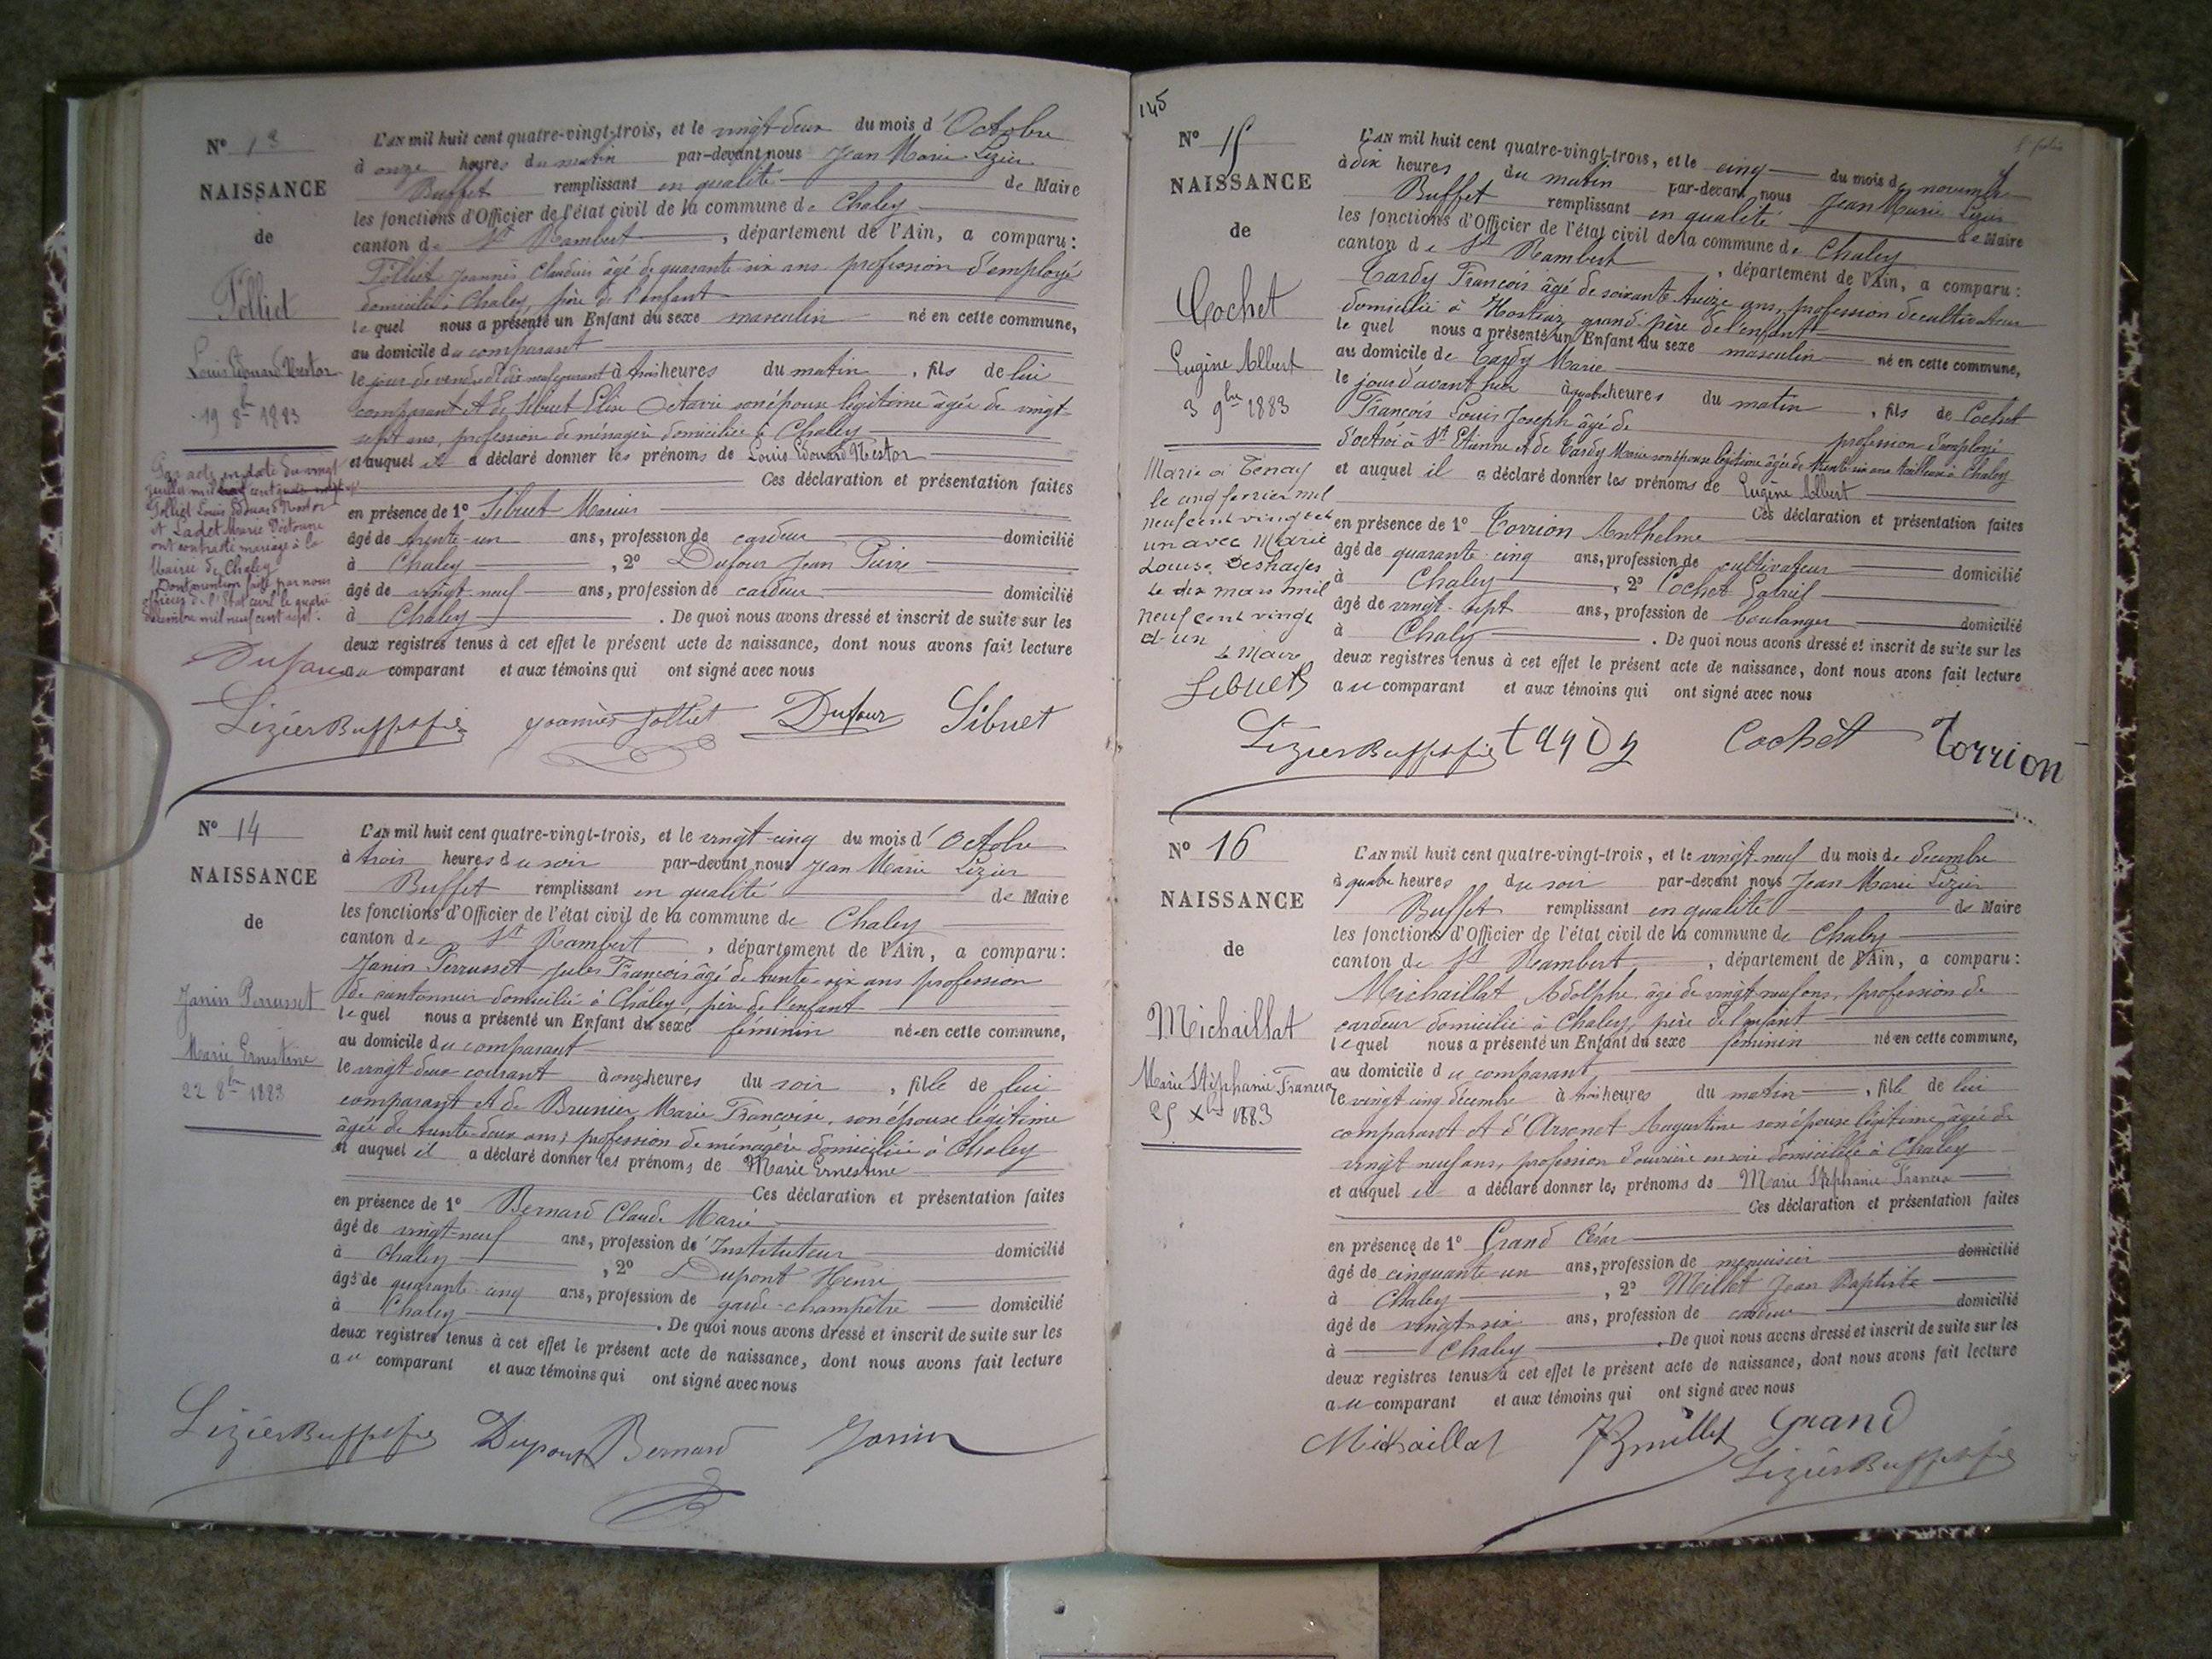 Nº 13
NAISSANCE
de
Folliet
Louis Edouard Nestor
19 8bre 1883
L'AN mil huit cent quatre-vingt-trois, et le vingt-deux du mois d'Octobre
à onze heures du matin par-devant nous Jean Marie Lizier
Buffet remplissant en qualité de Maire
les fonctions d'Officier de l'état civil de la commune de Chaley
canton de St Rambert, département de l'Ain, a comparu :
Folliet Joannès Claudius âgé de quarante six ans profession d'employé
domicilié à Chaley, père de l'enfant
lequel nous a présenté un Enfant du sexe masculin né en cette commune,
au domicile du comparant
le jour de vendredi dix neuf courant à trois heures du matin, fils de lui
comparant et de Sibuet Elise Octavie son épouse légitime âgée de vingt-
sept ans, profession de ménagère domiciliée à Chaley
et auquel il a déclaré donner les prénoms de Louis Edouard Nestor
Ces déclaration et présentation faites
en présence de 1º Sibuet Marius
âgé de trente-un ans, profession de cardeur domicilié
à Chaley, 2º Dufour Jean Pierre
âgé de vingt-neuf ans, profession de cardeur domicilié
à Chaley. De quoi nous avons dressé et inscrit de suite sur les
deux registres tenus à cet effet le présent acte de naissance, dont nous avons fait lecture
au comparant et aux témoins qui ont signé avec nous
Par acte en date du vingt
juillet mil neuf cent
Folliet Louis Edouard Nestor
et Ladet Marie
ont contracté mariage à la
Mairie de Chaley
Dont mention faite par nous
officier de l'Etat civil le quatre
décembre mil neuf cent sept.
Dufour
Lizier Buffet fils Joannès Folliet Dufour Sibuet
Nº 14
NAISSANCE
de
Janin Perrusset
Marie Ernestine
22 8bre 1883
L'AN mil huit cent quatre-vingt-trois, et le vingt-cinq du mois d'Octobre
à trois heures du soir par-devant nous Jean Marie Lizier
Buffet remplissant en qualité de Maire
les fonctions d'Officier de l'état civil de la commune de Chaley
canton de St Rambert, département de l'Ain, a comparu :
Janin Perrusset Jules François âgé de trente-six ans profession
de cantonnier domicilié à Chaley, père de l'enfant
lequel nous a présenté un Enfant du sexe féminin né-en cette commune,
au domicile du comparant
le vingt deux courant à onze heures du soir, fille de lui
comparant et de Brunier Marie Françoise, son épouse légitime
âgée de trente-deux ans, profession de ménagère domiciliée à Chaley
et auquel il a déclaré donner les prénoms de Marie Ernestine
Ces déclaration et présentation faites
en présence de 1º Bernard Claude Marie
âgé de vingt-neuf ans, profession d'Instituteur domicilié
à Chaley, 2º Dupont Henri
âgé de quarante-cinq ans, profession de garde-champêtre domicilié
à Chaley. De quoi nous avons dressé et inscrit de suite sur les
deux registres tenus à cet effet le présent acte de naissance, dont nous avons fait lecture
au comparant et aux témoins qui ont signé avec nous
Lizier Buffet fils Dupont Bernard Janin
145
Nº 15
NAISSANCE
de
Cochet
Eugène Albert
3 9bre 1883
L'AN mil huit cent quatre-vingt-trois, et le cinq du mois de novembre
à dix heures du matin par-devant nous Jean Marie Lizier
Buffet remplissant en qualité de Maire
les fonctions d'Officier de l'état civil de la commune de Chaley
canton de St Rambert, département de l'Ain, a comparu :
Tardy François âgé de soixante treize ans, profession de cultivateur
domicilié à Hostiaz grand-père de l'enfant
lequel nous a présenté un Enfant du sexe masculin né en cette commune,
au domicile de Tardy Marie
le jour d'avant hier à quatre heures du matin, fils de Cochet
François Louis Joseph âgé de profession d'employé
d'octroi à St Etienne et de Tardy Marie son épouse légitime âgée de trente-six ans tailleuse à Chaley
et auquel il a déclaré donner les prénoms de Eugène Albert
Ces déclaration et présentation faites
en présence de 1º Torrion Anthelme
âgé de quarante-cinq ans, profession de cultivateur domicilié
à Chaley, 2º Cochet Gabriel
âgé de vingt-sept ans, profession de boulanger domicilié
à Chaley. De quoi nous avons dressé et inscrit de suite sur les
deux registres tenus à cet effet le présent acte de naissance, dont nous avons fait lecture
au comparant et aux témoins qui ont signé avec nous
Marié à Tenay
le cinq février mil
neuf cent vingt et
un avec Marie
Louise Deshayes
Le dix mars mil
neuf cent vingt
et un
Le Maire
Sibuet
Lizier Buffet fils tardy Cochet Torrion
Nº 16
NAISSANCE
de
Michaillat
Marie Stéphanie Francia
25 Xbre 1883
L'AN mil huit cent quatre-vingt-trois, et le vingt-neuf du mois de décembre
à quatre heures du soir par-devant nous Jean Marie Lizier
Buffet remplissant en qualité de Maire
les fonctions d'Officier de l'état civil de la commune de Chaley
canton de St Rambert, département de l'Ain, a comparu :
Michaillat Adolphe âgé de vingt neuf ans, profession de
cardeur domicilié à Chaley, père de l'enfant
lequel nous a présenté un Enfant du sexe féminin né en cette commune,
au domicile du comparant
le vingt cinq décembre à trois heures du matin, fille de lui
comparant et d'Arsonet Augustine son épouse légitime âgée de
vingt neuf ans, profession d'ouvrière en soie domiciliée à Chaley
et auquel il a déclaré donner les prénoms de Marie Stéphanie Francia
Ces déclaration et présentation faites
en présence de 1º Grand César
âgé de cinquante-un ans, profession de menuisier domicilié
à Chaley, 2º Millet Jean Baptiste
âgé de vingt-six ans, profession de cardeur domicilié
à Chaley. De quoi nous avons dressé et inscrit de suite sur les
deux registres tenus à cet effet le présent acte de naissance, dont nous avons fait lecture
au comparant et aux témoins qui ont signé avec nous
Michaillat JBmillet Grand
Lizier Buffet fils